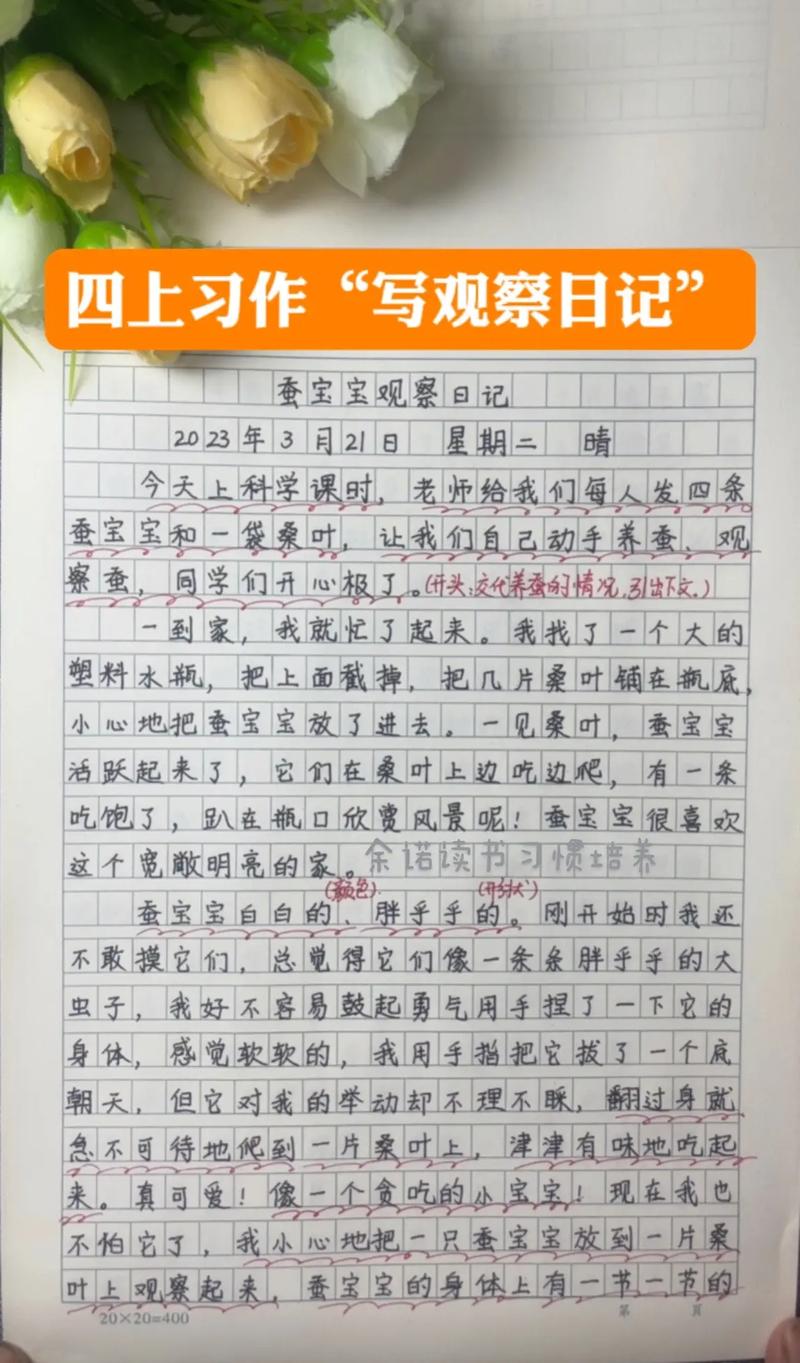 四上习作“写观察日记”
蚕宝宝观察日记
2023年3月21日 星期二 晴
今天上科学课时，老师给我们每人发四条
蚕宝宝和一袋桑叶，让我们自己动手养蚕、观
察蚕，同学们开心极了。(开头:交代养蚕的情况,引出下文.)
一到家，我就忙了起来。我找了一个大的
塑料水瓶，把上面截掉，把几片桑叶铺在瓶底，
小心地把蚕宝宝放了进去。一见桑叶，蚕宝宝
活跃起来了，它们在桑叶上边吃边爬，有一条
吃饱了，趴在瓶口欣赏风景呢！蚕宝宝很喜欢
这个宽敞明亮的家。余诺读书习惯培养
(颜色) (形状)
蚕宝宝白白的、胖乎乎的。刚开始时我还
不敢摸它们，总觉得它们像一条条胖乎乎的大
虫子，我好不容易鼓起勇气用手捏了一下它的
身体，感觉软软的，我用手指把它拨了一个底
朝天，但它对我的举动却不理不睬，翻过身就
急不可待地爬到一片桑叶上，津津有味地吃起
来。真可爱！像一个贪吃的小宝宝！现在我也
不怕它了，我小心地把一只蚕宝宝放到一片桑
叶上观察起来，蚕宝宝的身体上有一节一节的
20×20=400 第 页